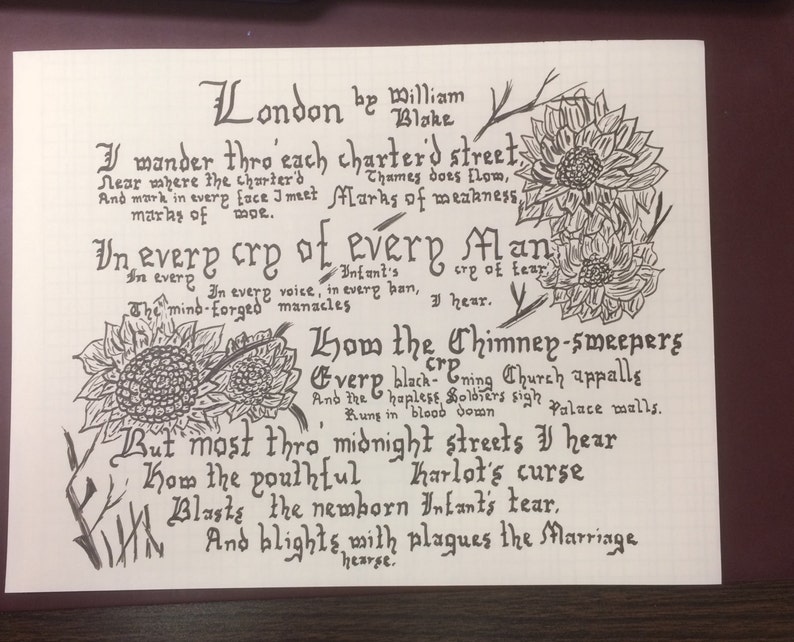 London by William Blake
I wander thro' each charter'd street,
Near where the charter'd Thames does flow,
And mark in every face I meet Marks of weakness,
marks of woe.
In every cry of every Man,
In every Infant's cry of fear,
In every voice, in every ban,
The mind-forged manacles I hear.
How the Chimney-sweepers
cry
Every black-ning Church appalls
And the hapless Soldiers sigh
Runs in blood down Palace walls.
But most thro' midnight streets I hear
How the youthful Harlot's curse
Blasts the newborn Infant's tear,
And blights with plagues the Marriage
hearse.